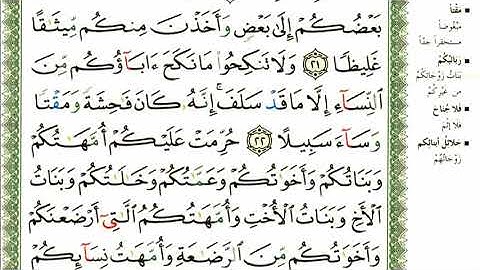 بَعۡضُكُمۡ إِلَىٰ بَعۡضٖ وَأَخَذۡنَ مِنكُم مِّيثَٰقًا
غَلِيظٗا ٢١ وَلَا تَنكِحُواْ مَا نَكَحَ ءَابَآؤُكُم مِّنَ
ٱلنِّسَآءِ إِلَّا مَا قَدۡ سَلَفَۚ إِنَّهُۥ كَانَ فَٰحِشَةٗ وَمَقۡتٗا
وَسَآءَ سَبِيلًا ٢٢ حُرِّمَتۡ عَلَيۡكُمۡ أُمَّهَٰتُكُمۡ
وَبَنَاتُكُمۡ وَأَخَوَٰتُكُمۡ وَعَمَّٰتُكُمۡ وَخَٰلَٰتُكُمۡ وَبَنَاتُ
ٱلۡأَخِ وَبَنَاتُ ٱلۡأُخۡتِ وَأُمَّهَٰتُكُمُ ٱلَّٰتِيٓ أَرۡضَعۡنَكُمۡ
وَأَخَوَٰتُكُم مِّنَ ٱلرَّضَٰعَةِ وَأُمَّهَٰتُ نِسَآئِكُمۡ
مَقْتاً
مَبْغُوضاً
مستحقراً جدّاً
رَبَائِبُكُمْ
بَنَاتُ زَوْجَاتِكُمْ
مِن غَيْرِكُمْ
فَلا جُنَاحَ
فَلا إثْمَ
حَلائِلُ أَبْنَائِكُم
زَوْجَاتُهُمْ